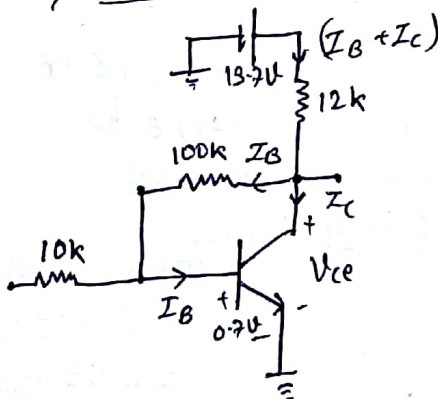 (I_B + I_C)
13.7V
12k
100k I_B
I_C
+
10k
V_ce
I_B
+
-
0.7V